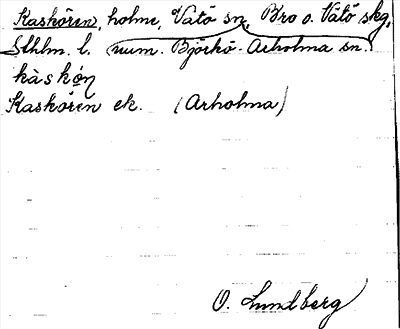 Kaskören, holme, Vätö sn, Bro o. Vätö skg,
Sthlm. l. (num. Björkö-Arholma sn.)
kàskø̀n
Kaskören ek. (Arholma)
O. Lundberg